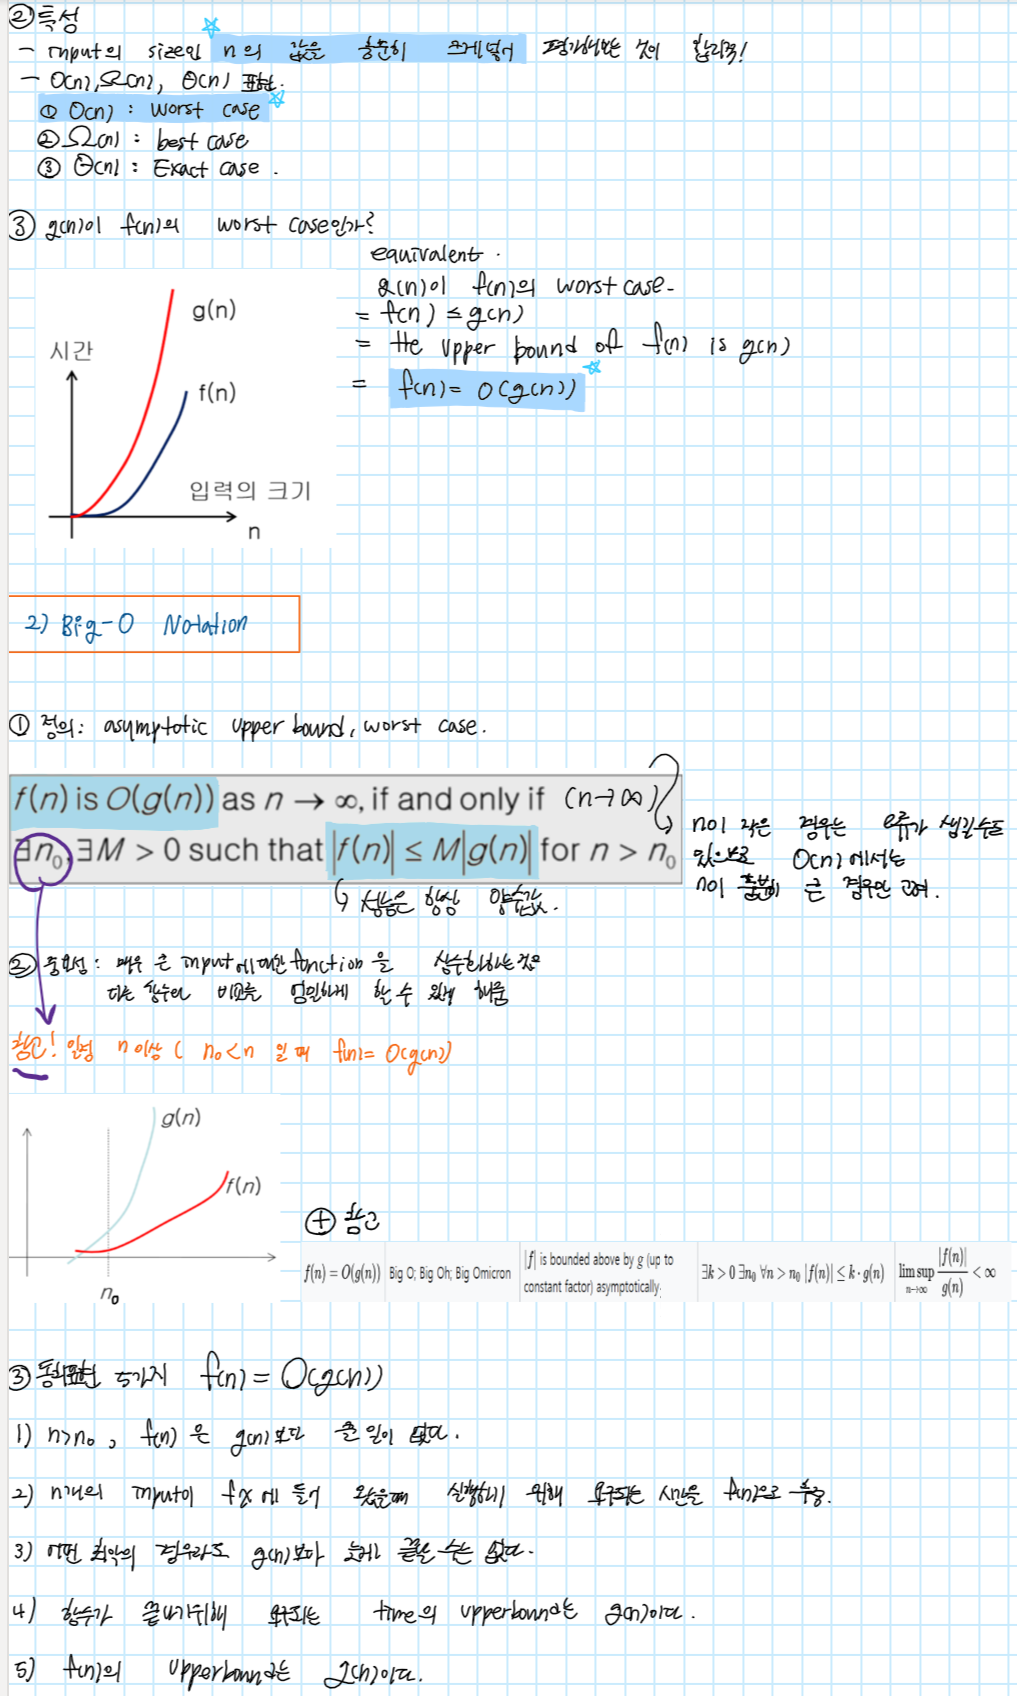 ② 특성
- input의 size인 n의 값을 충분히 크게 넣어 평가해보는 것이 합리적!
- O(n), Ω(n), Θ(n) 포함.
① O(n) : worst case
② Ω(n) : best case
③ Θ(n) : Exact case.
③ g(n)이 f(n)의 worst case인가?
equivalent.
g(n)이 f(n)의 worst case.
= f(n) ≤ g(n)
= the upper bound of f(n) is g(n)
= f(n) = O(g(n))
g(n)
시간
f(n)
입력의 크기
n
2) Big-O Notation
① 정의: asymptotic upper bound, worst case.
f(n) is O(g(n)) as n → ∞, if and only if (n→∞)
∃n₀, ∃M > 0 such that |f(n)| ≤ M|g(n)| for n > n₀
n이 작은 경우는 오류가 생길수도
있으므로 O(n)에서는
n이 충분히 큰 경우만 고려.
성능은 항상 양수값.
② 중요성: 매우 큰 input에 대한 function을 상수화하는 것은
다른 함수와 비교를 엄밀하게 할 수 있게 해줌
참고! 일정 n이상 ( n₀<n 일 때 f(n) = O(g(n))
g(n)
f(n)
n₀
⊕ 참고
f(n) = O(g(n)) Big O; Big Oh; Big Omicron |f| is bounded above by g (up to constant factor) asymptotically. ∃k > 0 ∃n₀ ∀n > n₀ |f(n)| ≤ k · g(n) lim sup n→∞ |f(n)| / g(n) < ∞
③ 동의표현 5가지 f(n) = O(g(n))
1) n>n₀, f(n)은 g(n)보다 클 일이 없다.
2) n개의 input이 fx에 들어 왔을때 실행하기 위해 요구되는 시간을 f(n)으로 측정.
3) 어떤 최악의 경우라도 g(n)보다 늦게 끝날 수는 없다.
4) 함수가 끝나기위해 요구되는 time의 upperbound는 g(n)이다.
5) f(n)의 upperbound는 g(n)이다.